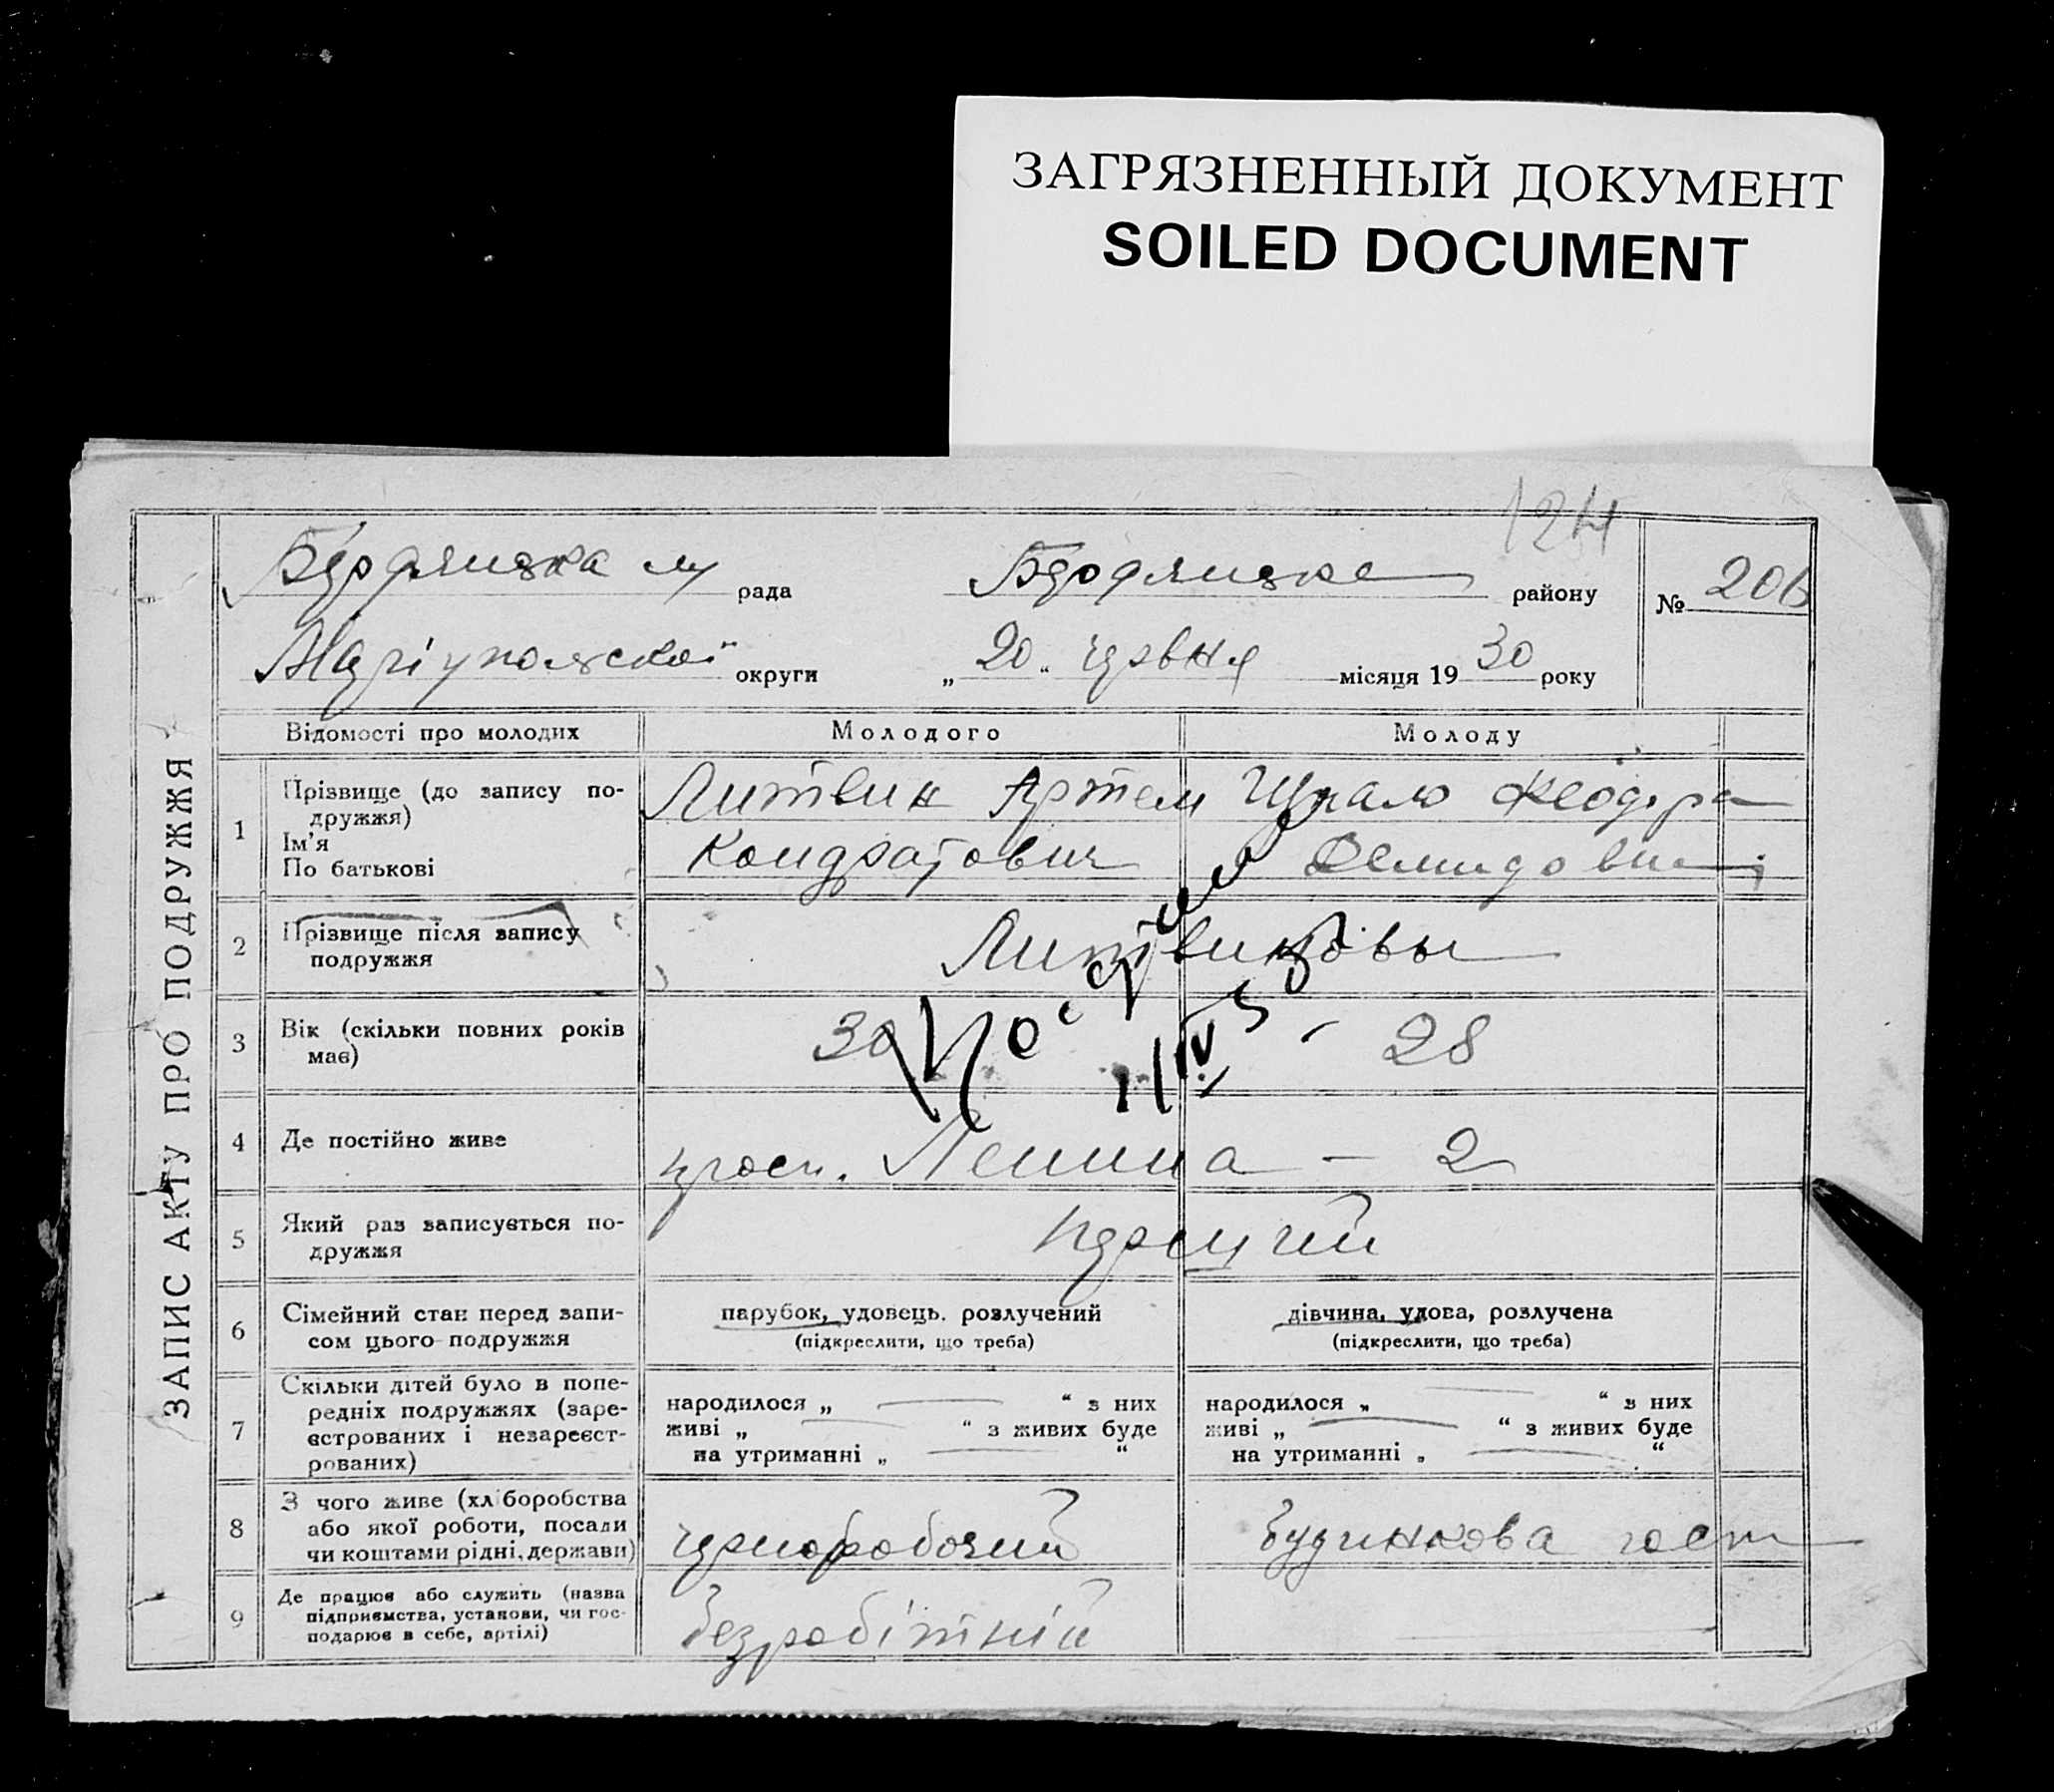 ЗАГРЯЗНЕННЫЙ ДОКУМЕНТ
SOILED DOCUMENT
124
Бердянська м рада Бердянського району № 206
Маріупольської округи „20“ червня місяця 1930 року
ЗАПИС АКТУ ПРО ПОДРУЖЖЯ
Відомості про молодих Молодого Молоду
1 Прізвище (до запису по-
дружжя)
Ім'я
По батькові
Литвин Артем
Кондратович
Феодора
Демидовна
2 Прізвище після запису
подружжя
Литвиновы
3 Вік (скільки повних років
має)
30 28
4 Де постійно живе
просп. Ленина - 2
5 Який раз записується по-
дружжя
перший
6 Сімейний стан перед запи-
сом цього подружжя
парубок, удовець, розлучений
(підкреслити, що треба)
дівчина, удова, розлучена
(підкреслити, що треба)
7 Скільки дітей було в попе-
редніх подружжях (заре-
єстрованих і незареєст-
рованих)
народилося „ “ з них
живі „ “ з живих буде
на утриманні „ “
народилося „ “ з них
живі „ “ з живих буде
на утриманні „ “
8 З чого живе (хліборобства
або якої роботи, посади
чи коштами рідні, держави)
черноробочий
будинкова госп
9 Де працює або служить (назва
підприємства, установи, чи гос-
подарює в себе, артілі)
безробітній